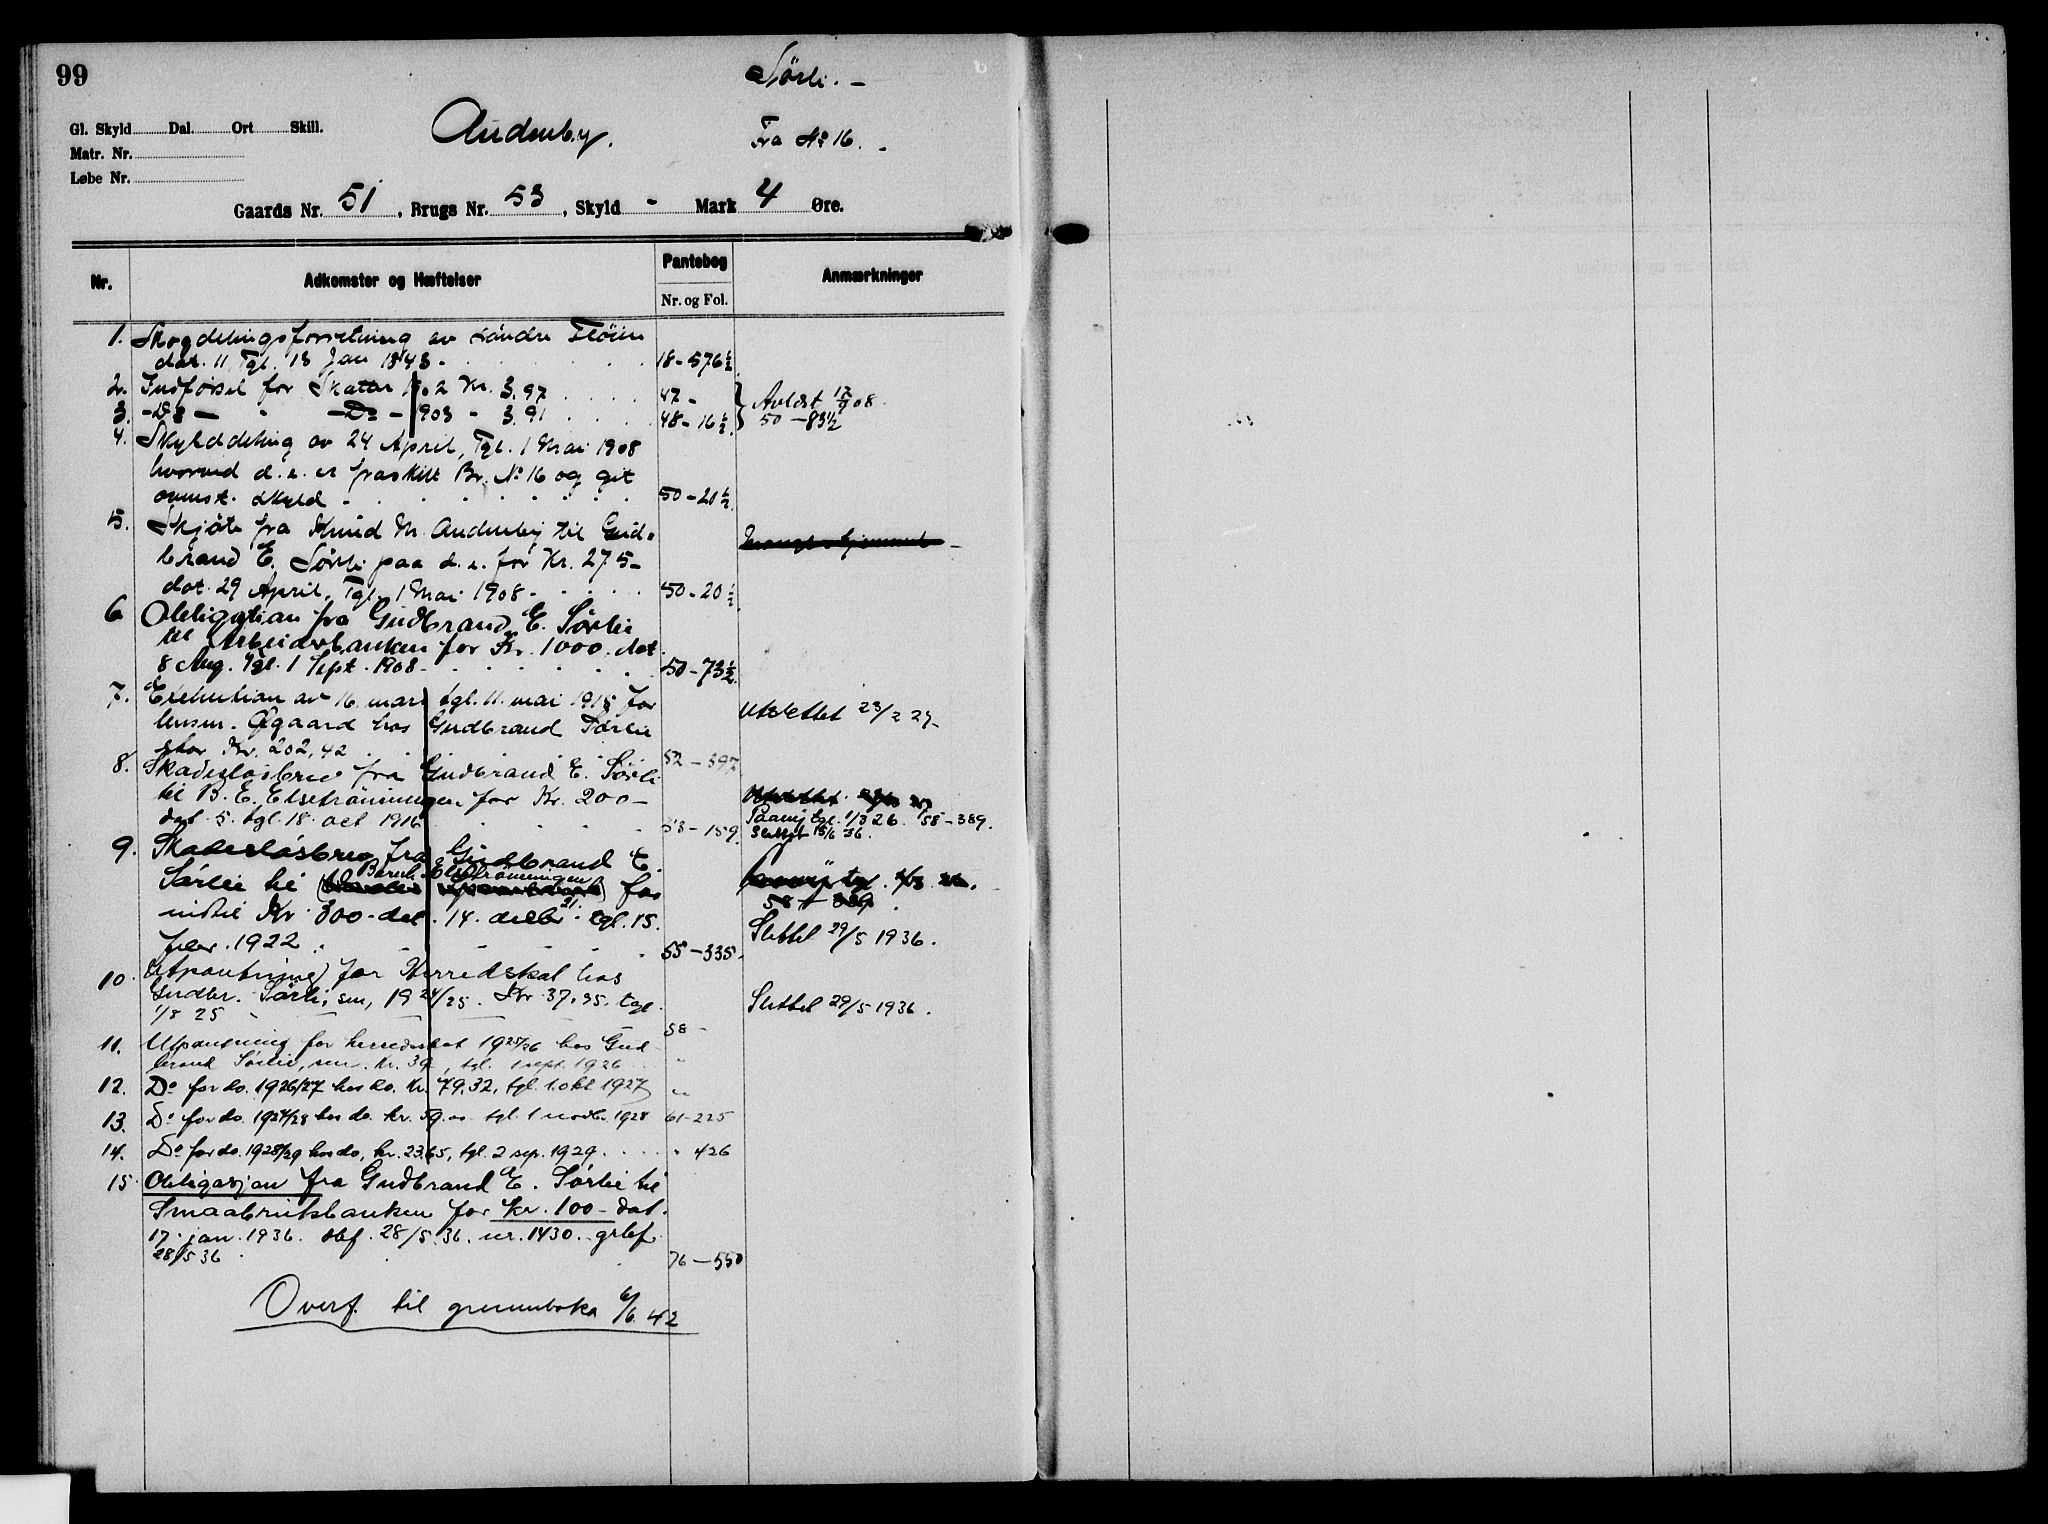 99
Sørli. -
Gl. Skyld Dal. Ort Skill.
Audenby.
Fra No 16. -
Matr. Nr.
Løbe Nr.
Gaards Nr. 51, Brugs Nr. 53, Skyld - Mark 4 Øre.
Nr. Adkomster og Hæftelser Pantebog Anmærkninger
Nr. og Fol.
1. Skogdelingsforretning av søndre Fløien
dat. 11 Tgl. 13 Jan 1843 - 18 - 576 ½
2. Indførsel for Skatter 1902 Kr. 3.97 47 - Avlæst 12/9 08
3. - Do - - Do - 1903 - 3.91 48 - 16 ½ 50 - 83 ½
4. Skylddeling av 24 April, Tgl. 1 Mai 1908
hvorved d. e. er fraskilt Br. No 16 og git
ovenst. skyld 50 - 20 ½
5. Skjøte fra Knud M. Audenby til Gud-
brand E. Sørli paa d. e. for Kr. 275 -
dat. 29 April, Tgl. 1 Mai 1908 - 50 - 20 ½
6 Obligation fra Gudbrand E. Sørlie
til Arbeiderbanken for Kr. 1000. dat.
8 Aug. Tgl. 1 Sept. 1908 - 50 - 73 ½
7. Exekution av 16 mars tgl. 11. mai 1915 for
lensm. Øgaard hos Gudbrand Sørlie
stor Kr. 202,42 52 - 397
Utslettet 23/2 27 -
8. Skadesløsbrev fra Gudbrand E. Sørli
til B. E. Elsetrønningen for Kr. 200 -
dat. 5. tgl. 18. oct 1916 53 - 159.
Paavij tgl. 1/3 26. 58 - 389.
Slettet 15/6 36.
9. Skadesløsbrev fra Gudbrand E.
Sørlie til Bernh. Elsetrønningen for
indtil Kr. 300 - dat. 14. decbr. 21. tgl. 15.
febr. 1922. 55 - 335.
58 - 389.
Slettet 29/5 1936.
10. Utpantning for Herredskat hos
Gudbr. Sørli, sen, 1924/25. Kr. 37,35. tgl.
1/8 25 58 -
Slettet 29/5 1936.
11. Utpantning for herredsskat 1925/26 hos Gud-
brand Sørlie, sen. kr. 39, tgl. 1 sept. 1926 "
12. Do for do. 1926/27 hos do. Kr. 79,32, tgl. 1. okt 1927 "
13. Do for do. 1927/28 hos do. kr. 59. tgl. 1 novbr. 1928 61 - 225
14. Do for do. 1928/29 hos do, kr. 23.65, tgl. 2 sep. 1929. " 426
15 Obligasjon fra Gudbrand E. Sørlie til
Smaabruksbanken for Kr. 100 - dat.
17. jan. 1936. dbf. 28/5. 36. nr. 1430. - grbf.
28/5 36 76 - 550
Overf. til grunnboka 6/6. 42